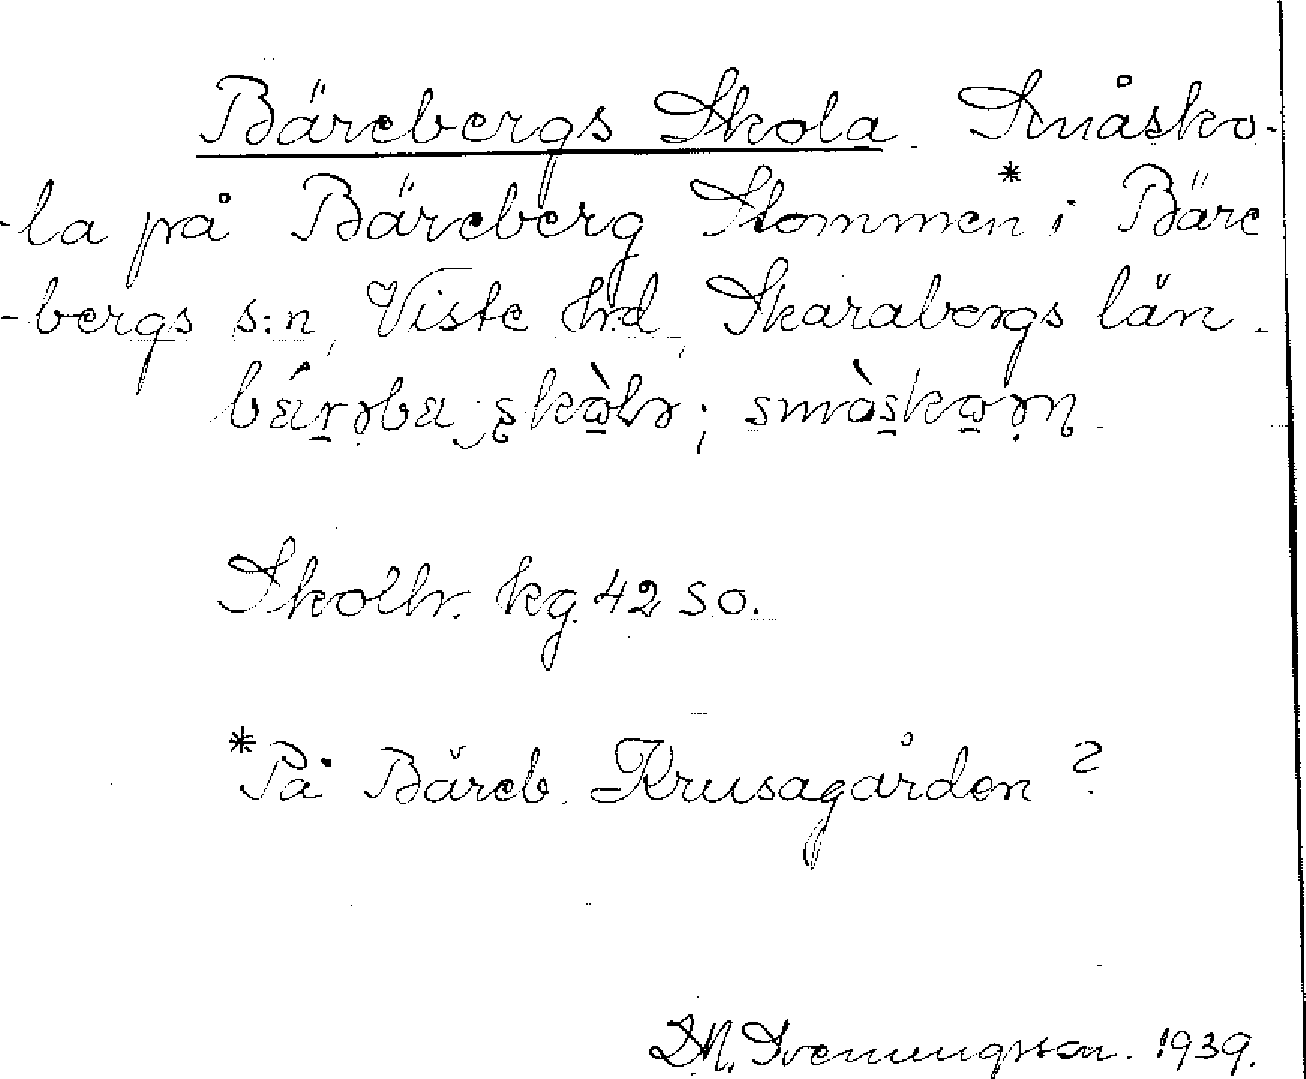 Bärebergs Skola. Småsko-
-la på Bäreberg Stommen* i Bäre
-bergs s:n, Viste hd, Skaraborgs län.
Skolbr. kg. 42 SO.
*På Båreb. Krusagården ?
D.N. Svenungsson. 1939.